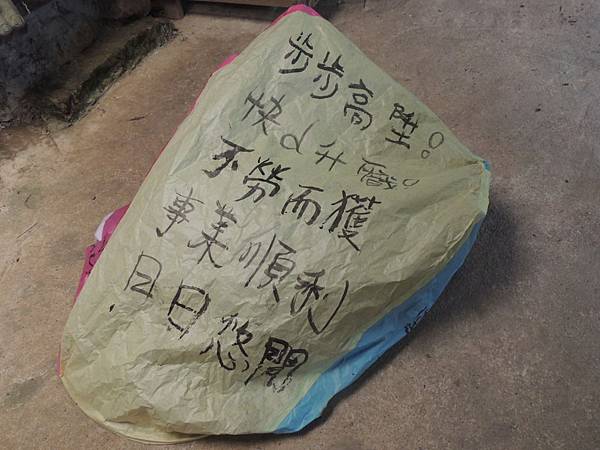 步步高陞!
快d升職。
不勞而獲
事業順利
日日悠閒